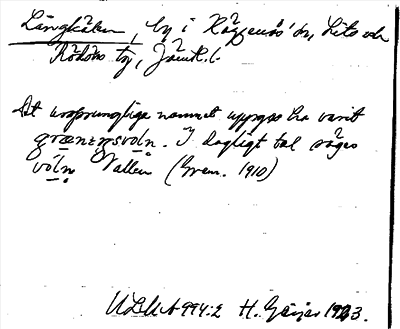 Långkälen, by i Häggenås' sn, Lits och
Rödöns tg, Jämtl. l.
Det ursprungliga namnet uppges ha varit
grænìngsvoln. I dagligt tal säges
voln Vallen (Grem. 1910)
ULMA 994:2 H. Geijer 1923.